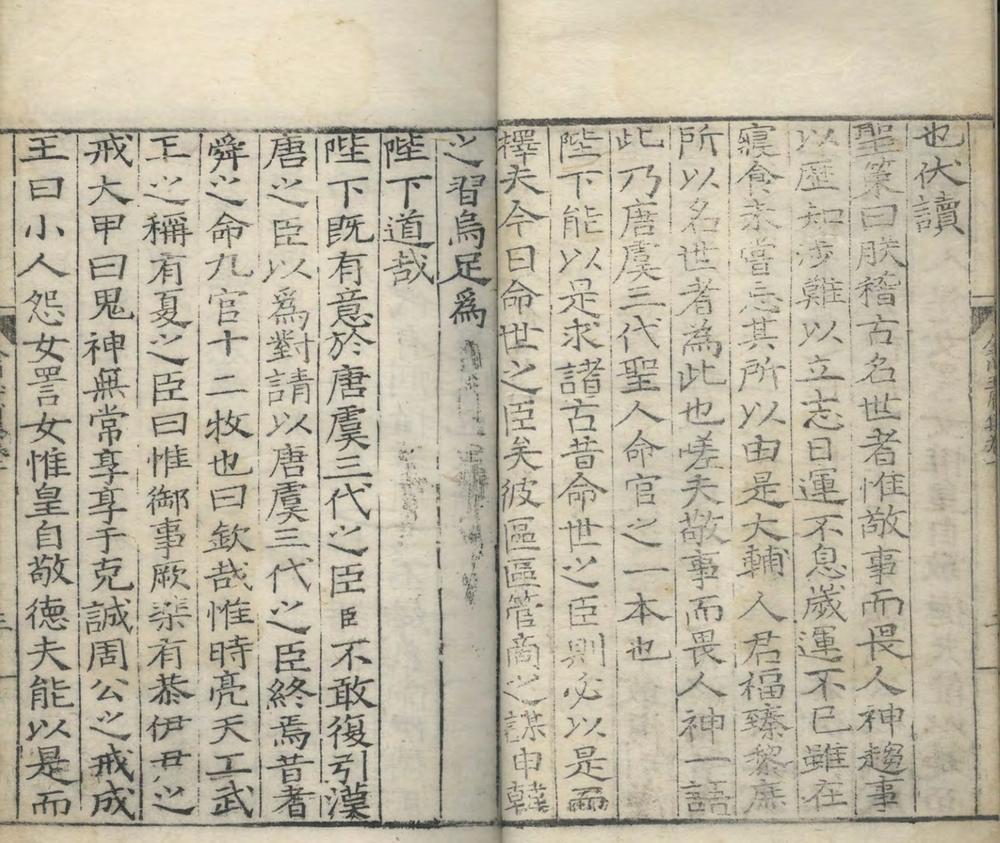 也伏讀
聖策曰朕稽古名世者惟敬事而畏人神趨事
以歷知涉難以立志日運不息歲運不已雖在
寢食未嘗忘其所以由是大輔人君福臻黎庶
所以名世者為此也嗟夫敬事而畏人神一語
此乃唐虞三代聖人命官之一本也
陛下能以是求諸古昔命世之臣則必以是而
擇夫今日命世之臣矣彼區區管商之謀申韓
之習烏足為
陛下道哉
陛下既有意於唐虞三代之臣臣不敢復引漢
唐之臣以爲對請以唐虞三代之臣終焉昔者
舜之命九官十二牧也曰欽哉惟時亮天工武
王之稱有夏之臣曰惟御事厥棐有恭伊尹之
戒大甲曰鬼神無常享享于克誠周公之戒成
王曰小人怨女詈女惟皇自敬德夫能以是而